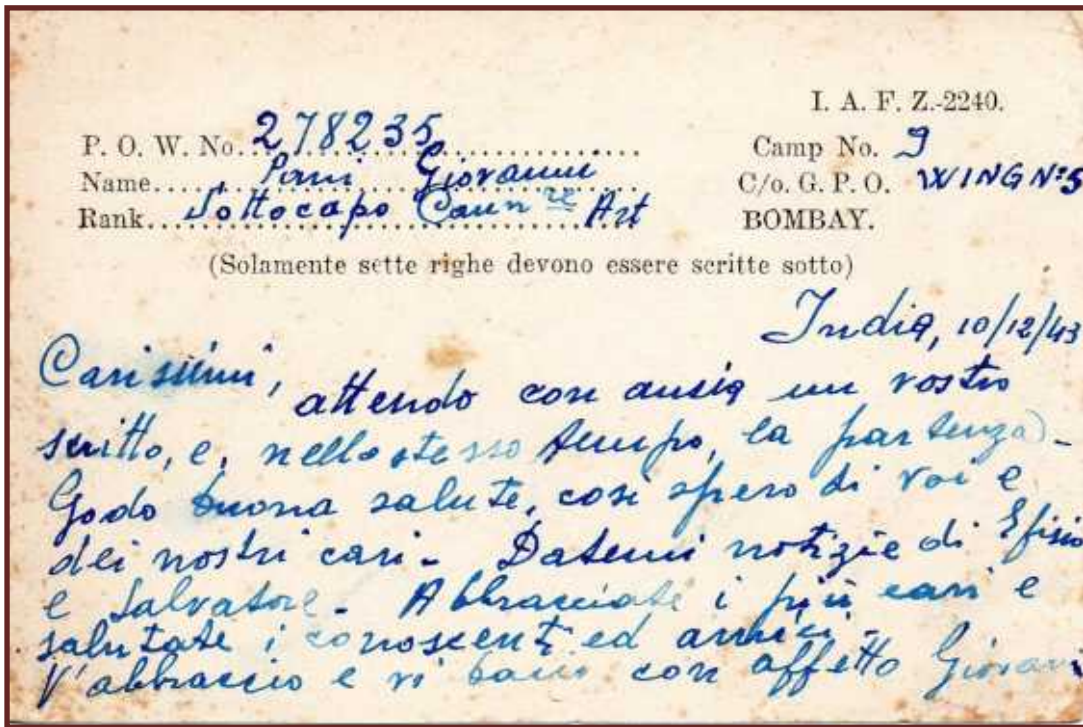 I. A. F. Z.-2240.
P. O. W. No. 278235 Camp No. 9
Name Giovanni C/o. G. P. O. WING Nº5
Rank Sottocapo Cannre Art BOMBAY.
(Solamente sette righe devono essere scritte sotto)
India, 10/12/43
Carissimi, attendo con ansia un vostro
scritto, e, nello stesso tempo, la partenza -
Godo buona salute, così spero di voi e
dei nostri cari - Datemi notizie di Efisio
e Salvatore - Abbracciate i più cari e
salutate i conoscenti ed amici -
V'abbraccio e vi bacio con affetto Giovanni